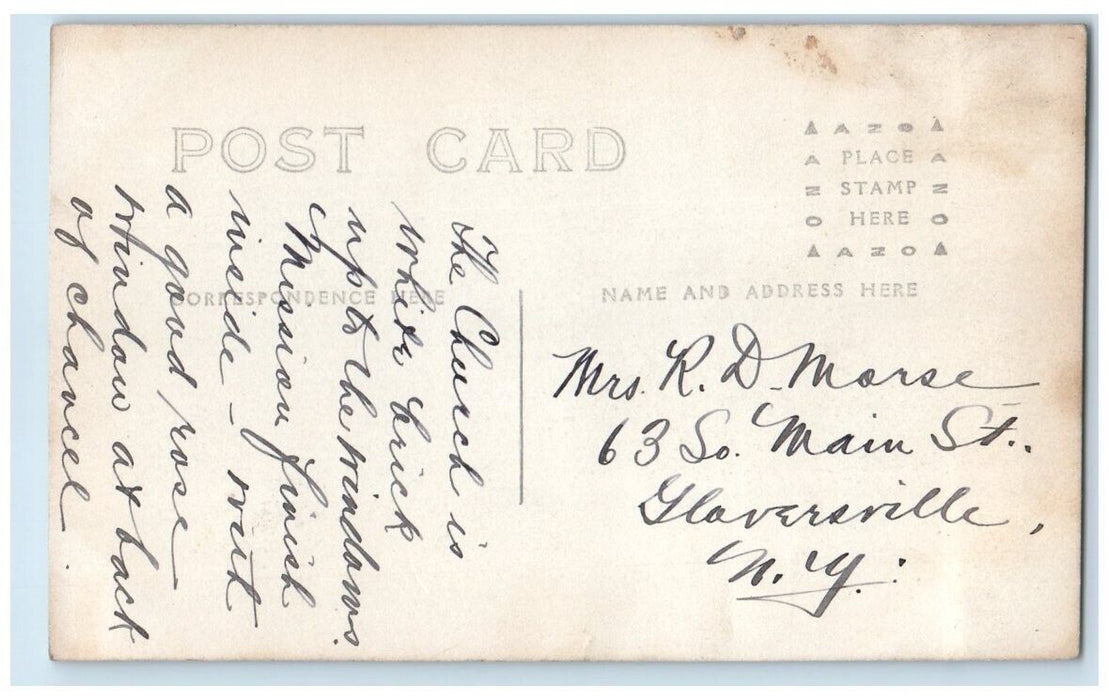 POST CARD
AZO
PLACE
STAMP
HERE
AZO
AZO
AZO
CORRESPONDENCE HERE
NAME AND ADDRESS HERE
The Church is
white brick
up to the windows.
Mission finish
inside - with
a good rose
window at back
of chancel.
Mrs. R. D. Morse
63 So. Main St.,
Gloversville,
N. Y.